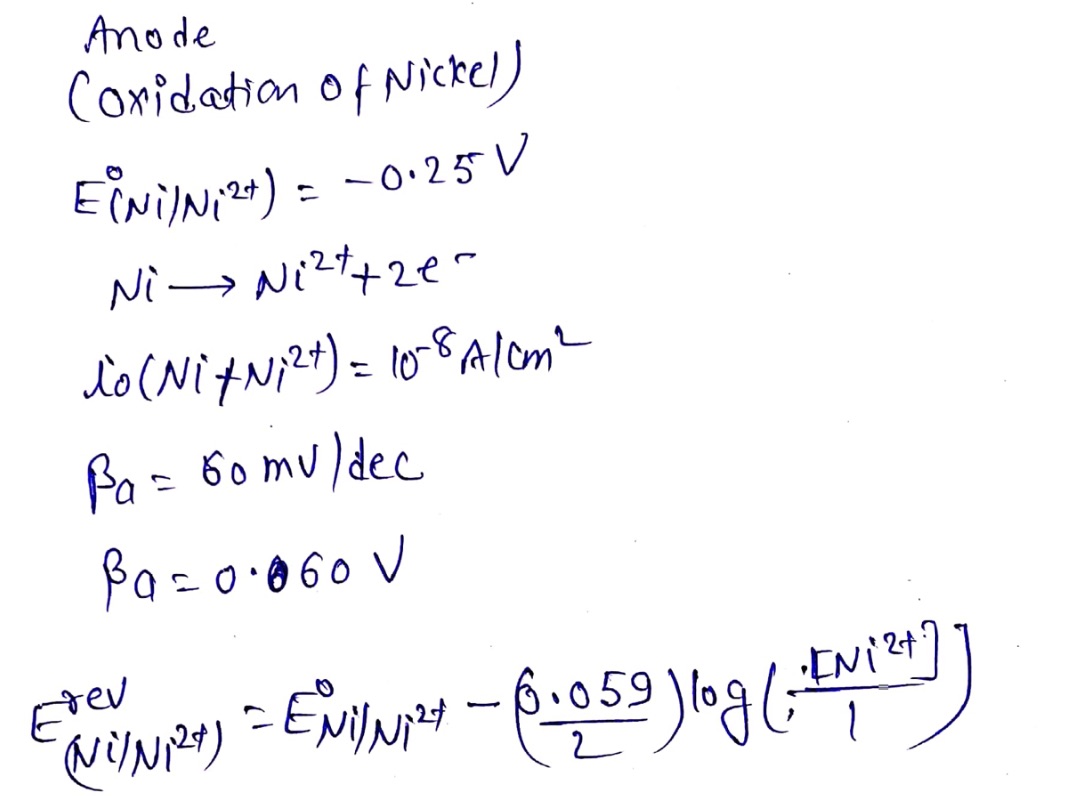 Anode
(oxidation of Nickel)
E°(Ni/Ni²⁺) = -0.25 V
Ni → Ni²⁺ + 2e⁻
i₀(Ni/Ni²⁺) = 10⁻⁸ A/cm²
βa = 60 mV/dec
βa = 0.060 V
E^rev (Ni/Ni²⁺) = E°Ni/Ni²⁺ - (0.059/2) log([Ni²⁺]/1)